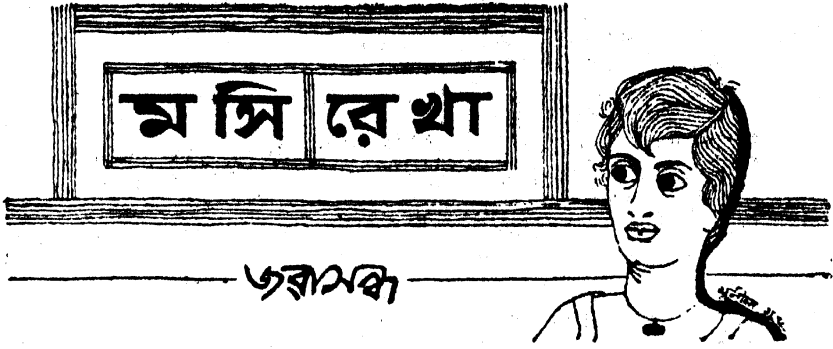 মসি রেখা
জরাসন্ধ